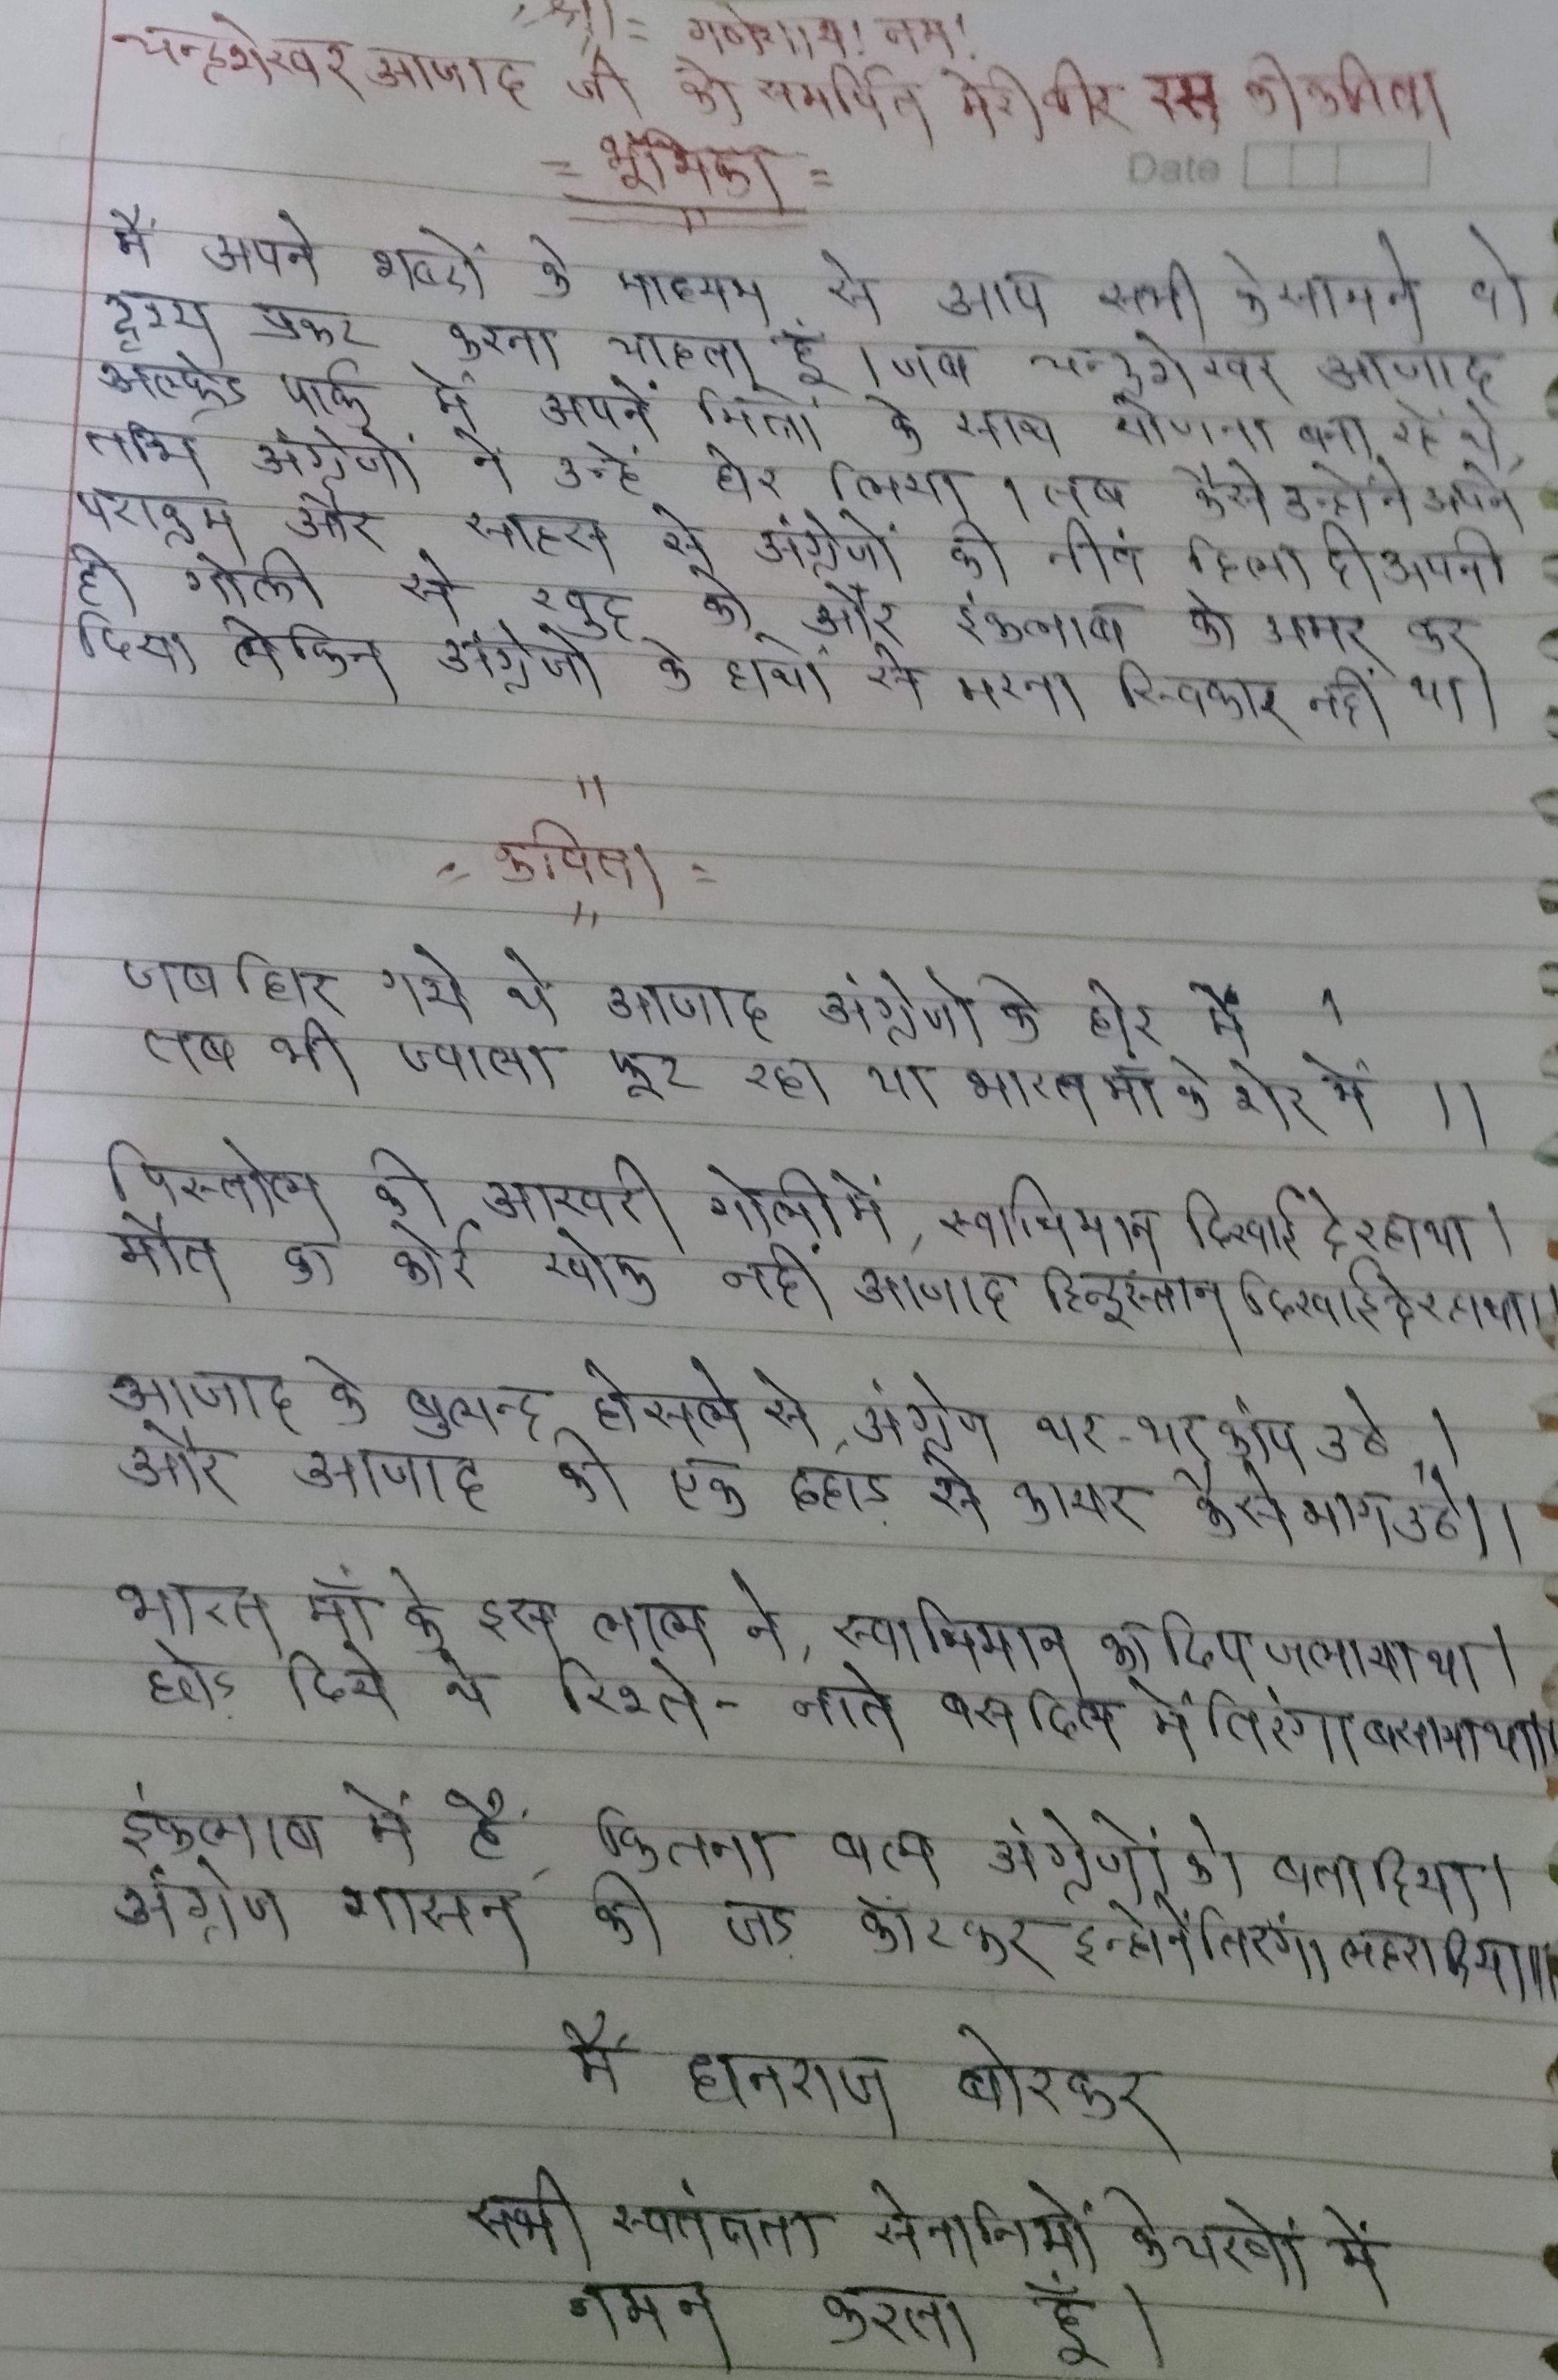 श्री = गणेशाय! नमः!
चन्द्रशेखर आजाद जी को समर्पित मेरी वीर रस की कविता
= भूमिका =
Date
मैं अपने शब्दों के माध्यम से आप सभी के सामने वो
दृश्य प्रकट करना चाहता हूं । जब चन्द्रशेखर आजाद
अल्फ्रेड पार्क में अपने मित्रों के साथ योजना बना रहे थे,
तभि अंग्रेजों ने उन्हें घेर लिया । तब कैसे उन्होंने अपने
पराक्रम और साहस से अंग्रेजों की नीवं हिला दी अपनी
ही गोली से खुद को और इंकलाब को अमर कर
दिया लेकिन अंग्रेजो के हाथों से मरना स्विकार नहीं था।
= कविता =
जब घिर गये थे आजाद अंग्रेजो के घेर में ।
तब भी ज्वाला फूट रहा था भारत माँ के शेर में ।।
पिस्तोल की आखरी गोली में, स्वाभिमान दिखाई दे रहा था।
मौत का कोई खोफ नहीं आजाद हिन्दुस्तान दिखाई दे रहा था।।
आजाद के बुलन्द होसले से, अंग्रेज थर-थर कांप उठे ।
और आजाद की एक दहाड़ से कायर कैसे भाग उठे।।
भारत माँ के इस लाल ने, स्वाभिमान का दिप जलाया था।
छोड़ दिये थे रिश्ते- नाते बस दिल में तिरंगा बसाया था।।
इंकलाब में है, कितना बल अंग्रेजों को बता दिया।
अंग्रेज शासन की जड़ काटकर इन्होनें तिरंगा लहरा दिया।।
मैं धनराज बोरकर
सभी स्वतंत्रता सेनानियों के चरणों में
नमन करता हूँ।